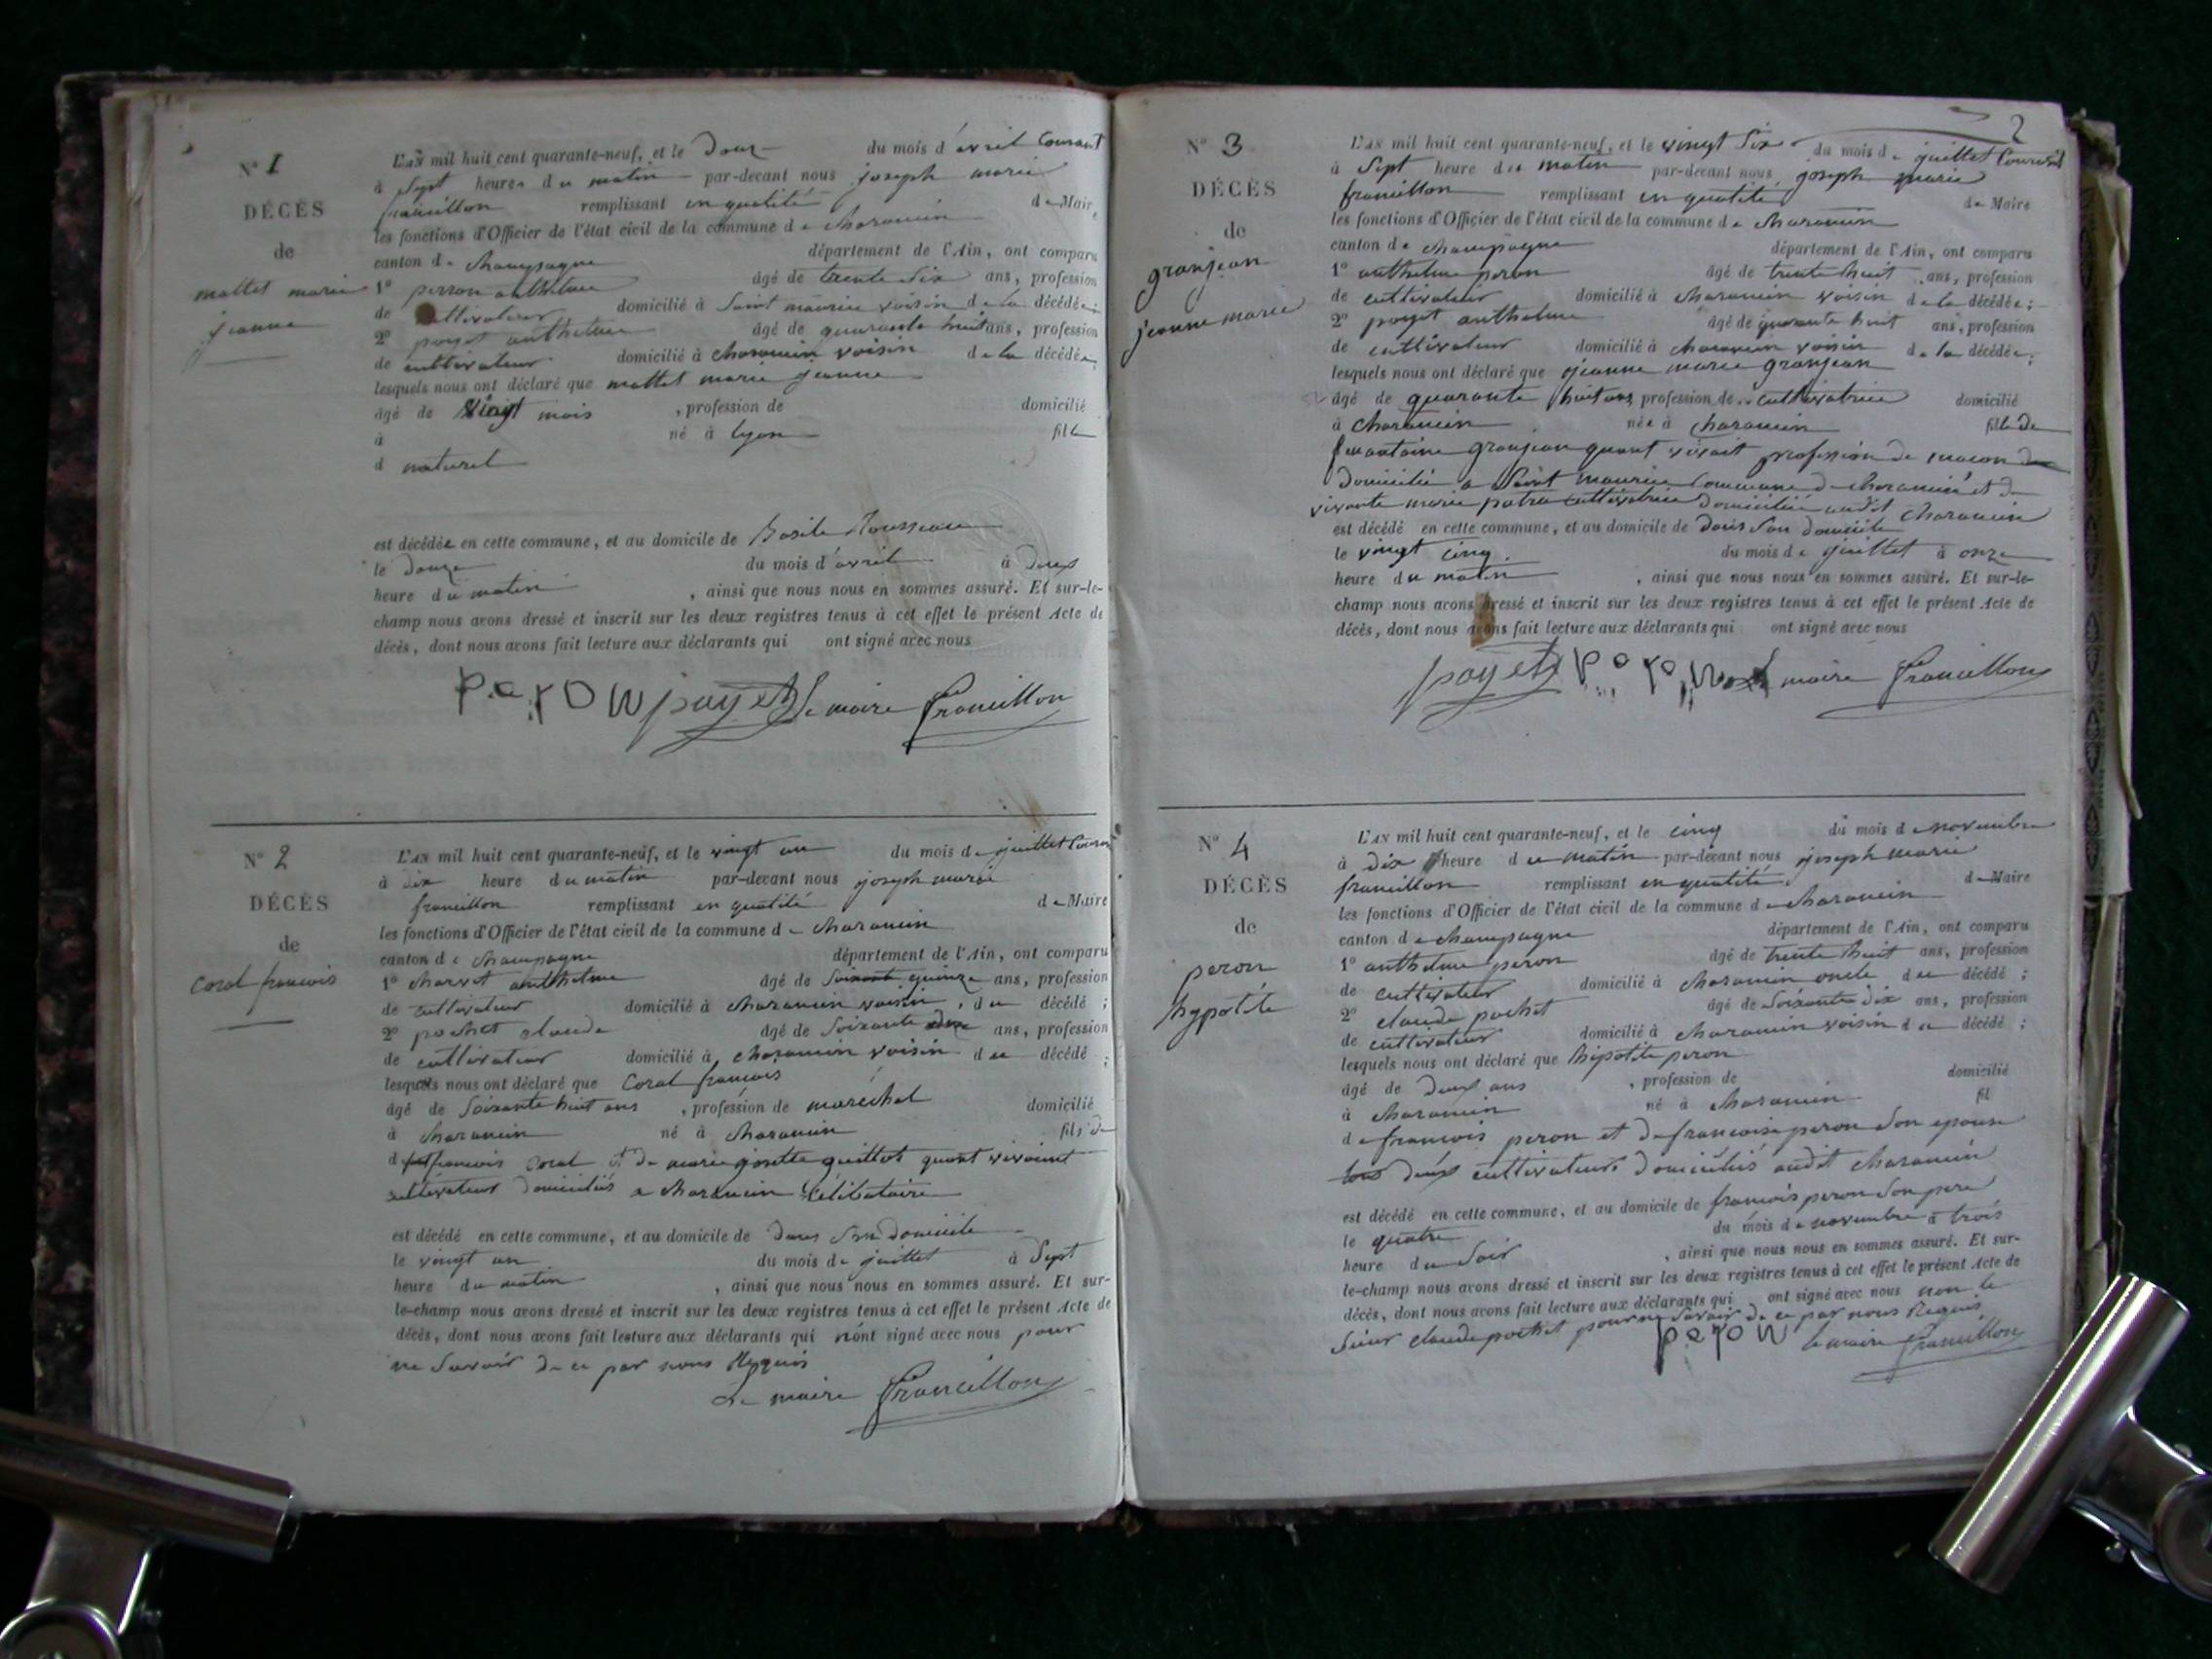 N° 1
DÉCÈS
de
mallet marie
jeanne
L'AN mil huit cent quarante-neuf, et le douze du mois d'avril Courant
à Sept heures du matin par-devant nous joseph marie
francillon remplissant en qualité de Maire
les fonctions d'Officier de l'état civil de la commune de charancin
canton de champagne département de l'Ain, ont comparu
1° perron anthelme âgé de trente six ans, profession
de cultivateur domicilié à Saint maurice voisin de la décédée;
2° payet anthelme âgé de quarante huit ans, profession
de cultivateur domicilié à charancin voisin de la décédée;
lesquels nous ont déclaré que mallet marie jeanne
âgé de vingt mois , profession de domicilié
à né à lyon fille
d naturel
est décédée en cette commune, et au domicile de Basile Rousseau
le douze du mois d'avril à deux
heure du matin , ainsi que nous nous en sommes assuré. Et sur-le-
champ nous avons dressé et inscrit sur les deux registres tenus à cet effet le présent Acte de
décès, dont nous avons fait lecture aux déclarants qui ont signé avec nous
peron payet le maire francillon
N° 2
DÉCÈS
de
Coral francois
L'AN mil huit cent quarante-neuf, et le vingt un du mois de juillet Courant
à dix heure du matin par-devant nous joseph marie
francillon remplissant en qualité de Maire
les fonctions d'Officier de l'état civil de la commune de charancin
canton de champagne département de l'Ain, ont comparu
1° charvet anthelme âgé de Soixante quinze ans, profession
de cultivateur domicilié à charancin voisin, du décédé ;
2° pochet claude âgé de Soixante dix ans, profession
de cultivateur domicilié à charancin voisin du décédé ;
lesquels nous ont déclaré que Coral francois
âgé de Soixante huit ans , profession de maréchal domicilié
à charancin né à charancin fils de
d feu francois Coral et de marie josette guillot quant vivoient
cultivateur domiciliés a charancin Célibataire
est décédé en cette commune, et au domicile de dans Son domicile
le vingt un du mois de juillet à Sept
heure du matin , ainsi que nous nous en sommes assuré. Et sur-
le-champ nous avons dressé et inscrit sur les deux registres tenus à cet effet le présent Acte de
décès, dont nous avons fait lecture aux déclarants qui n'ont signé avec nous pour
ne Savoir de ce par nous Requis
Le maire francillon
2
N° 3
DÉCÈS
de
granjean
jeanne marie
L'AN mil huit cent quarante-neuf, et le vingt Six du mois de juillet Courant
à Sept heure du matin par-devant nous joseph marie
francillon remplissant en qualité de Maire
les fonctions d'Officier de l'état civil de la commune de charancin
canton de champagne département de l'Ain, ont comparu
1° anthelme peron âgé de trente huit ans, profession
de cultivateur domicilié à charancin voisin de la décédée;
2° payet anthelme âgé de quarante huit ans, profession
de cultivateur domicilié à charancin voisin de la décédée;
lesquels nous ont déclaré que jeanne marie granjean
âgé de quarante huit ans profession de cultivatrice domicilié
à charancin née à charancin fille de
feu antoine granjean quant vivait profession de macon
domicilié a Saint maurice Commune de charancin et de
vivante marie patra cultivatrice domiciliée audit charancin
est décédé en cette commune, et au domicile de dans Son domicile
le vingt cinq du mois de juillet à onze
heure du matin , ainsi que nous nous en sommes assuré. Et sur-le-
champ nous avons dressé et inscrit sur les deux registres tenus à cet effet le présent Acte de
décès, dont nous avons fait lecture aux déclarants qui ont signé avec nous
payet peron maire francillon
N° 4
DÉCÈS
de
peron
hypolite
L'AN mil huit cent quarante-neuf, et le cinq du mois de novembre
à dix heure du matin par-devant nous joseph marie
francillon remplissant en qualité de Maire
les fonctions d'Officier de l'état civil de la commune de charancin
canton de champagne département de l'Ain, ont comparu
1° anthelme peron âgé de trente huit ans, profession
de cultivateur domicilié à charancin oncle du décédé ;
2° claude pochet âgé de Soixante dix ans, profession
de cultivateur domicilié à charancin voisin du décédé ;
lesquels nous ont déclaré que hipolite peron
âgé de deux ans , profession de domicilié
à charancin né à charancin fil
de francois peron et de francoise peron Son epouse
tous deux cultivateurs domiciliés audit charancin
est décédé en cette commune, et au domicile de francois peron Son pere
le quatre du mois de novembre à trois
heure du Soir , ainsi que nous nous en sommes assuré. Et sur-
le-champ nous avons dressé et inscrit sur les deux registres tenus à cet effet le présent Acte de
décès, dont nous avons fait lecture aux déclarants qui ont signé avec nous non le
Sieur claude pochet pour ne Savoir de ce par nous Requis
peron le maire francillon